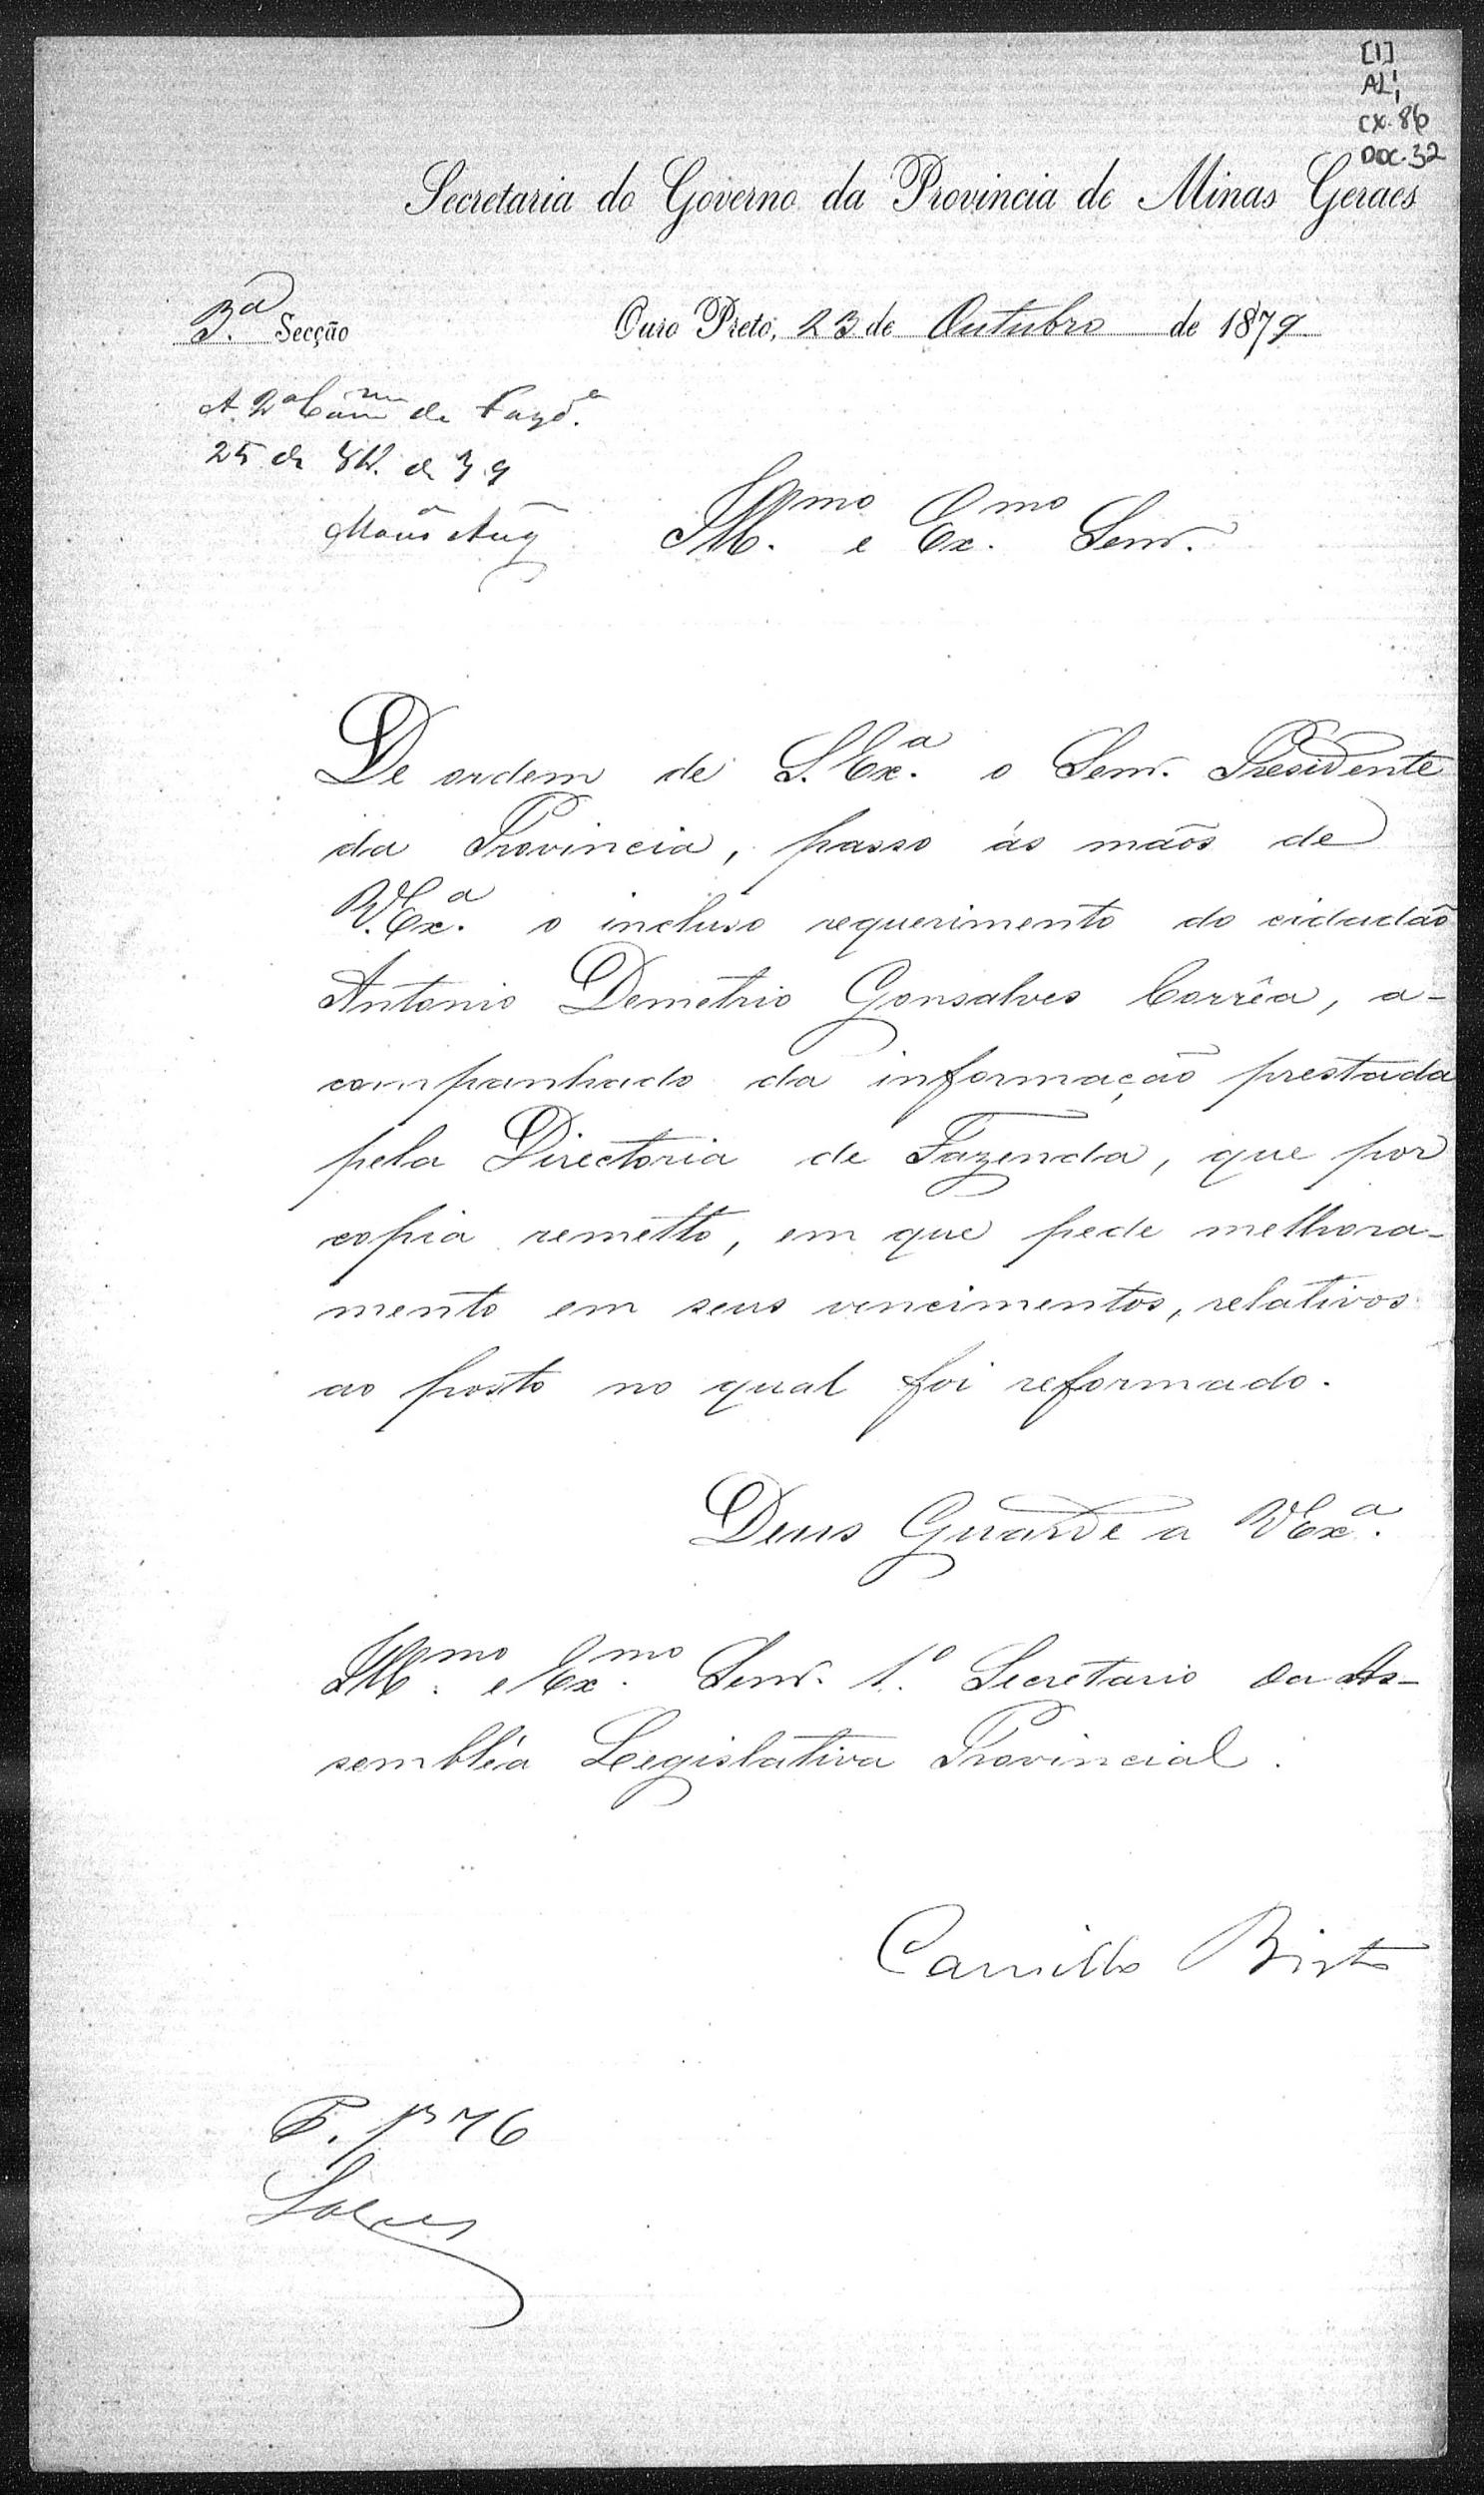 [1]
AL1,
CX. 86
DOC. 32
Secretaria do Governo da Provincia de Minas Geraes
3.ª Secção
Ouro Preto, 23 de Outubro de 1879
A 2ª Com.m de Fazd.ª
25 de 8br. de 79
Ill.mo e Ex.mo Senr.
De ordem de S. Ex.ª o Senr. Presidente
da Provincia, passo ás mãos de
V. Ex.ª o incluso requerimento do cidadão
Antonio Demetrio Gonsalves Corrêa, a-
companhado da informação prestada
pela Directoria de Fazenda, que por
copia remetto, em que pede melhora-
mento em seus vencimentos, relativos
ao posto no qual foi reformado.
Deus Guarde a V Ex.ª
Ill.mo e Ex.mo Senr. 1.º Secretario da As-
sembléa Legislativa Provincial.
Camillo Britto